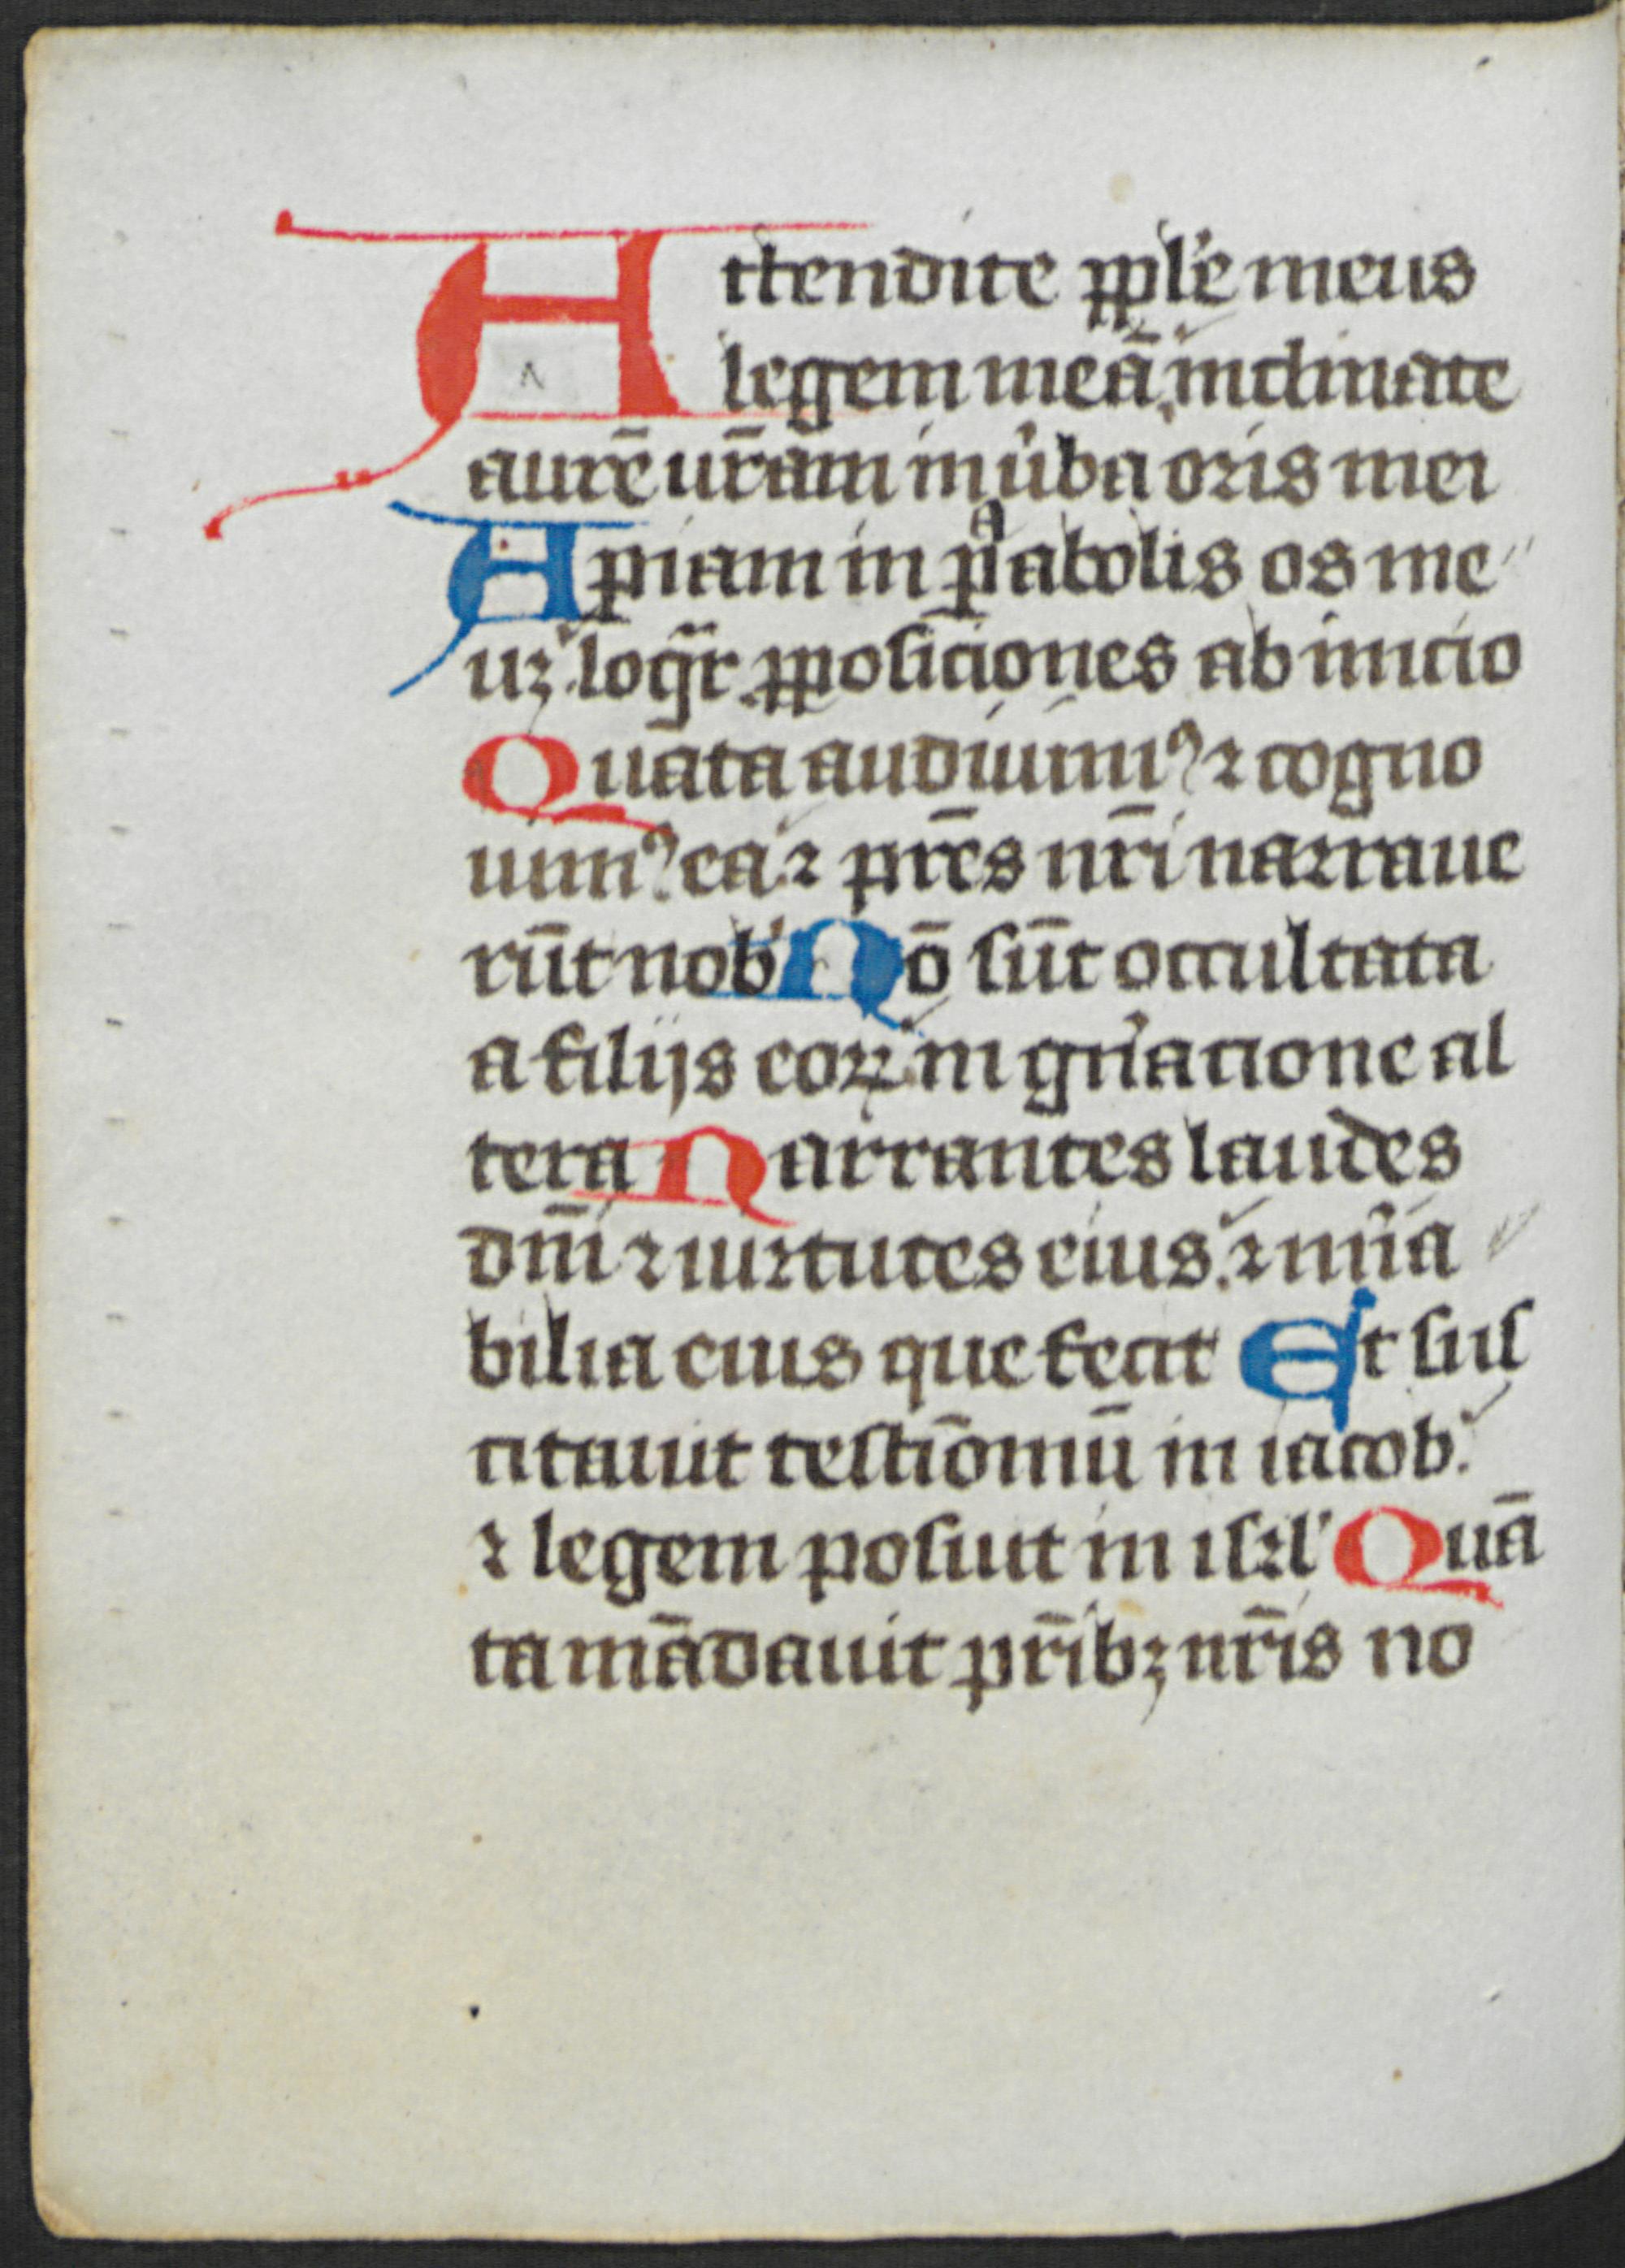 Attendite pple meus
legem meā inclinate
aurē vr̄am in v̓ba oris mei
Apiam in pᵃabolis os me
uꝫ loqr̄ ꝓposiciones ab inicio
Quāta audiuimꝰ ⁊ cogno
uimꝰ ea ⁊ pr̄es nr̄i narraue
rūt nob̓ Nō sūt occultata
a filijs eoꝝ in gn̓acione al
tera Narrantes laudes
dn̄i ⁊ uirtutes eius ⁊ mir̓a
bilia eius que fecit Et sus
citauit testīoniū in iacob
⁊ legem posuit in isrl̓ Quā
ta mādauit pr̄ibꝫ nr̄is no